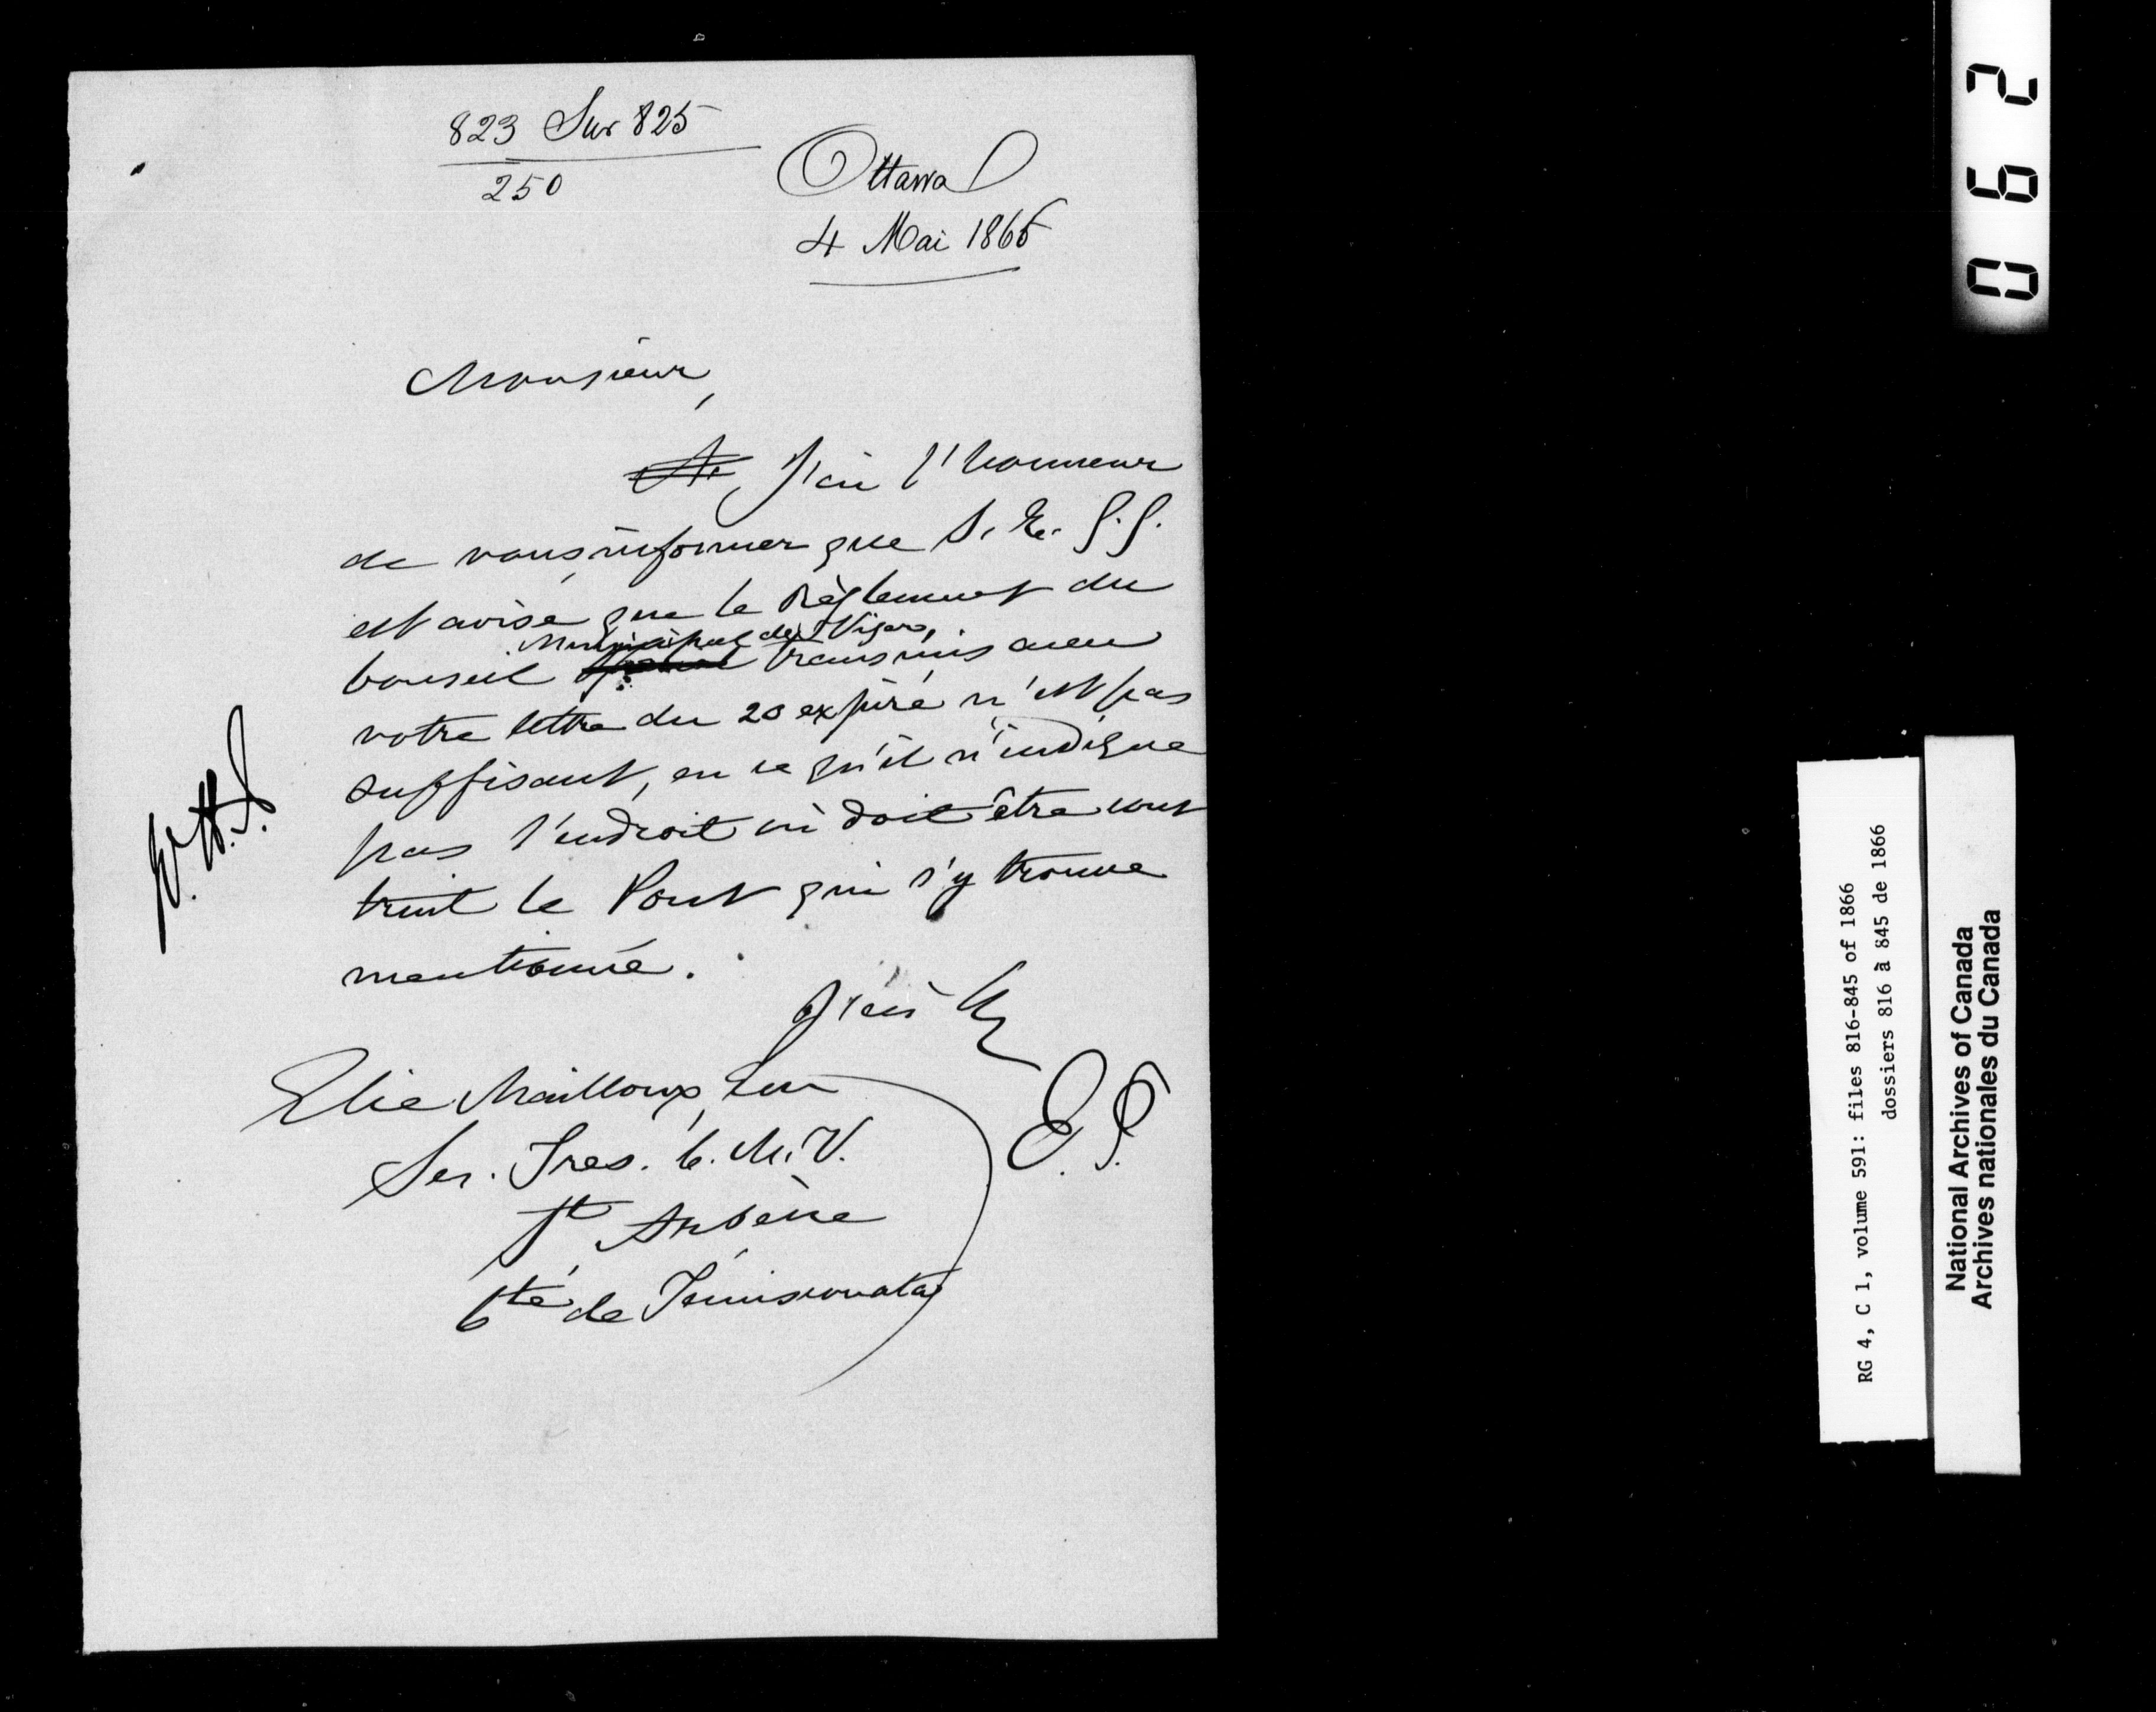 823 Sur 825
250
Ottawa
4 Mai 1866
Monsieur,
J'ai l'honneur
de vous informer que S. E. G. G.
est avisé que le Règlement du
Municipal de Viger,
Conseil transmis avec
votre lettre du 20 expiré n'est pas
suffisant, en ce qu'il n'indique
pas l'endroit où doit être cons
truit le Pont qui s'y trouve
mentionné.
J'ai
W.H.J.
Elie Mailloux, Ecr
E.P.
Sec. Tres. C. M. V.
St Arsène
Cté de Témiscouata
062
RG 4, C 1, volume 591: files 816-845 of 1866
dossiers 816 à 845 de 1866
National Archives of Canada
Archives nationales du Canada